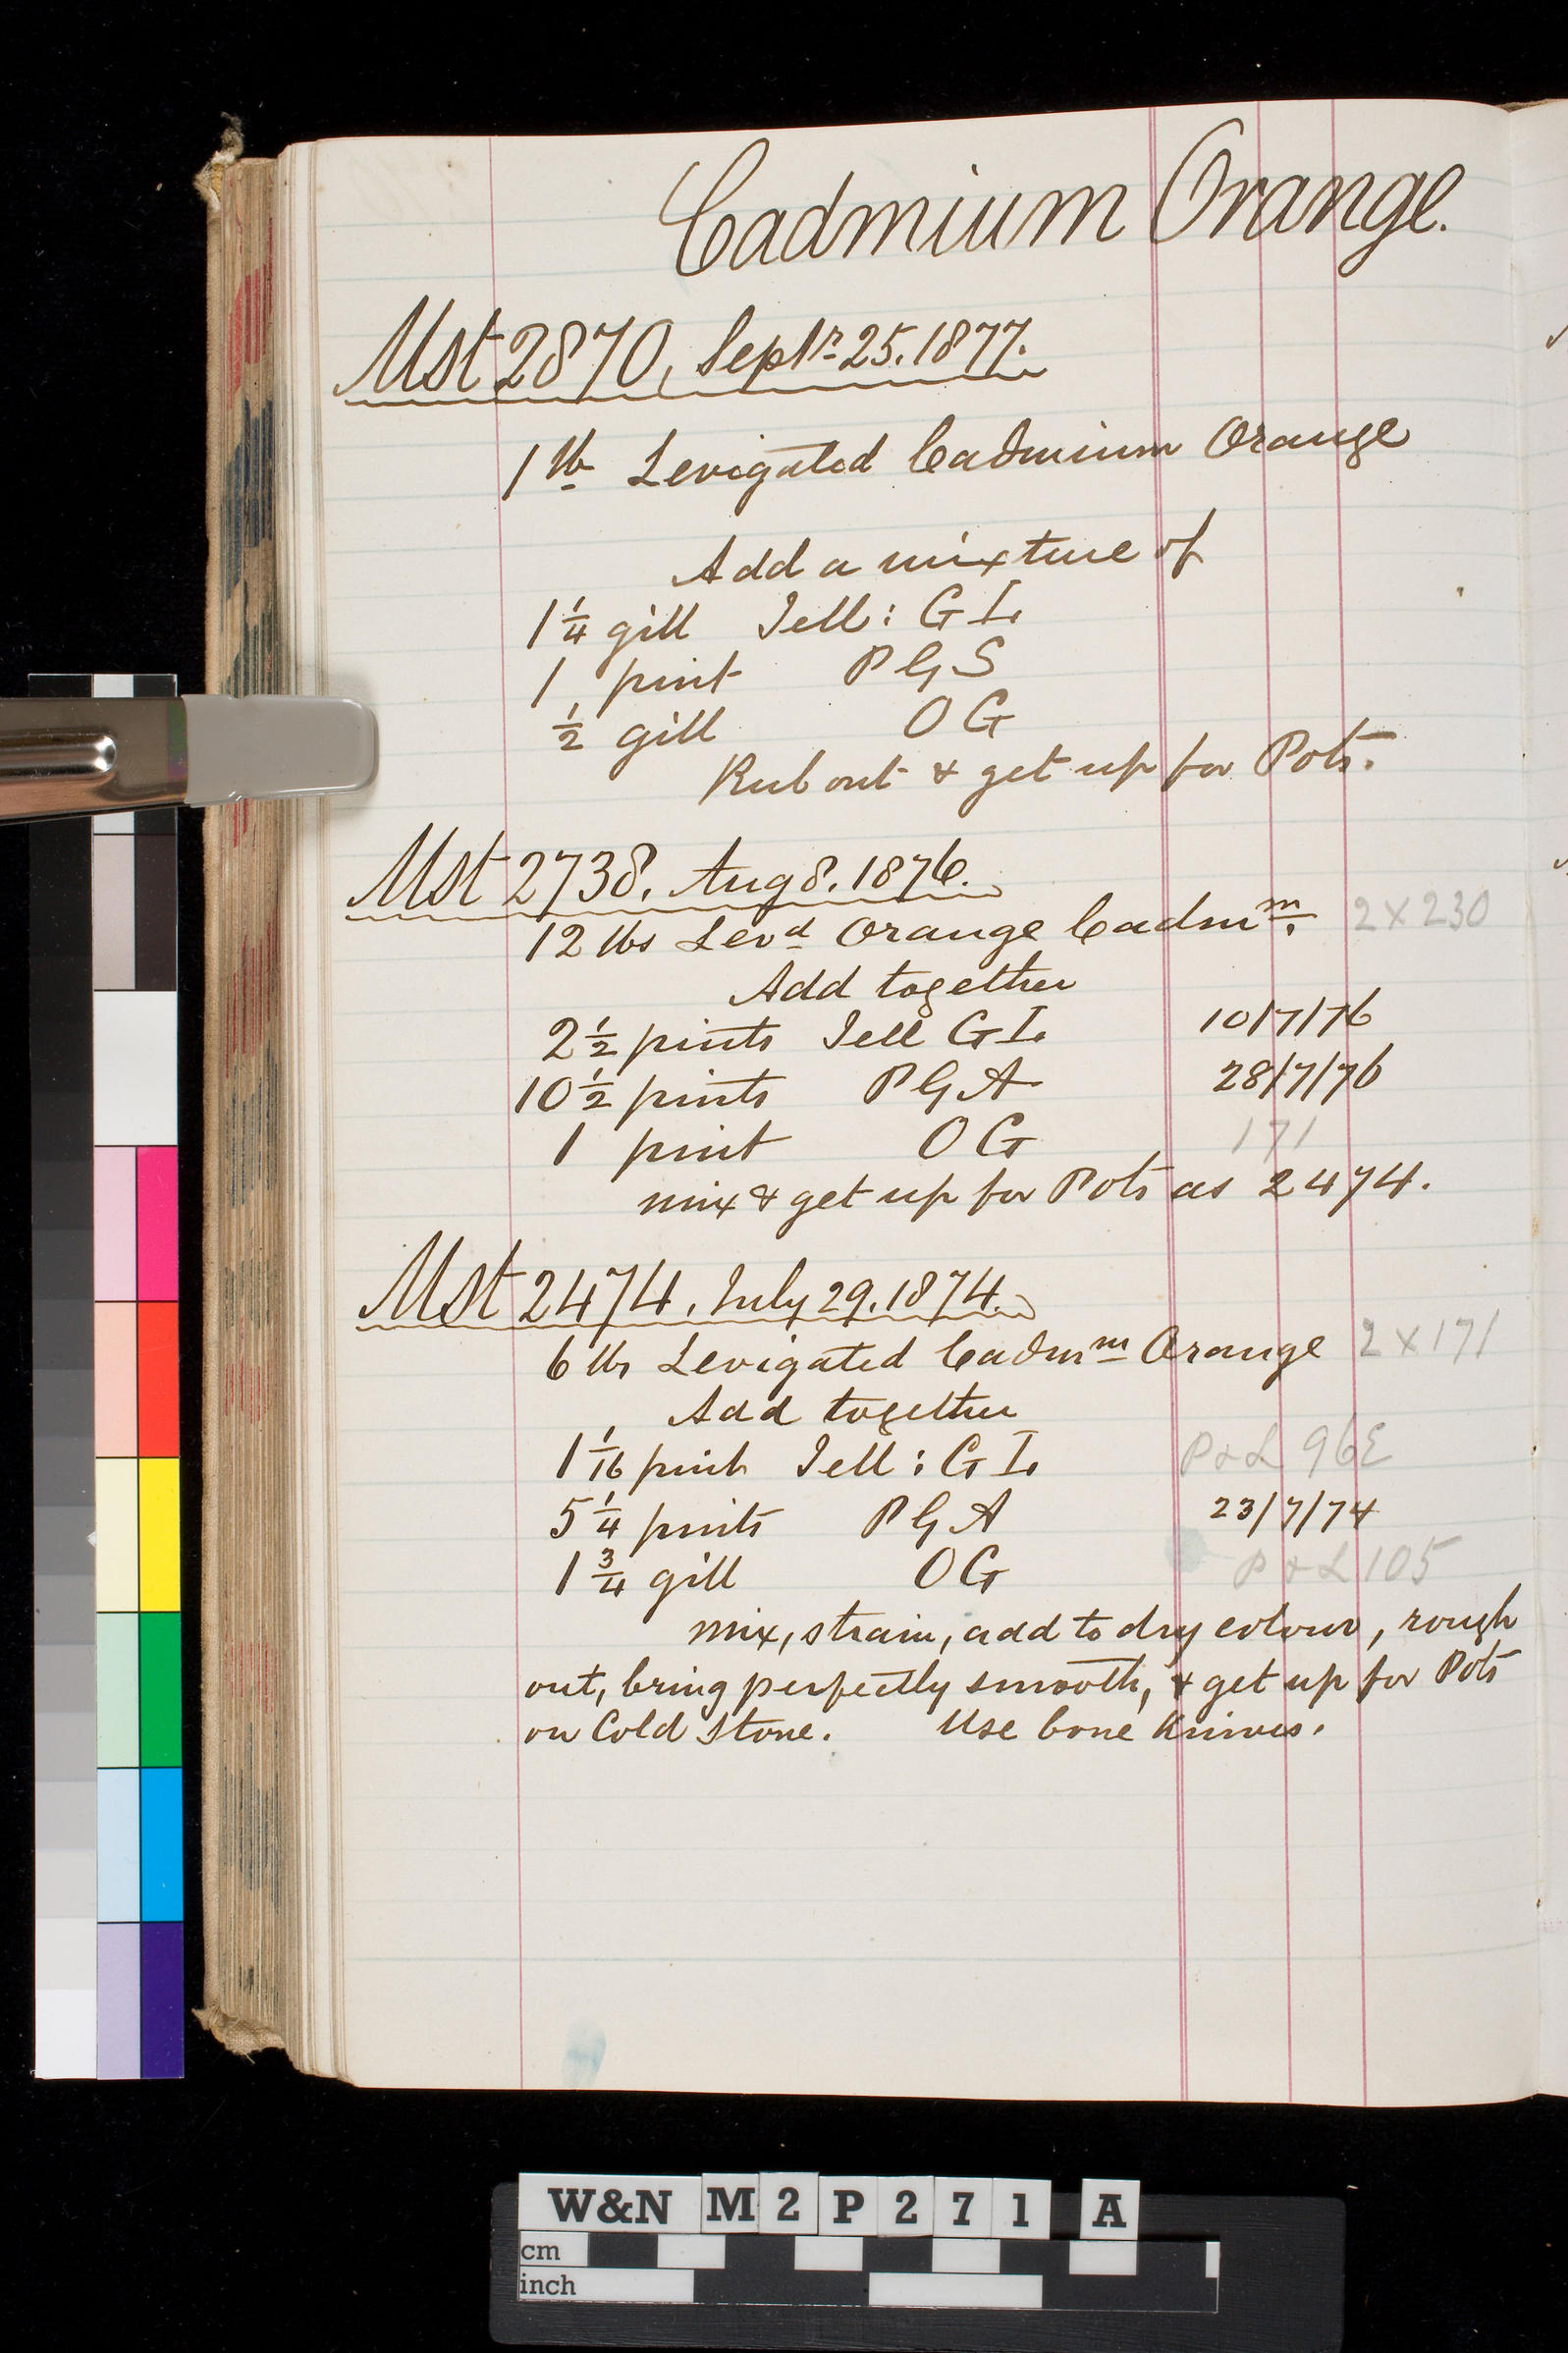 Cadmium Orange.
Mst 2870, Septr 25. 1877.
1 lb Levigated Cadmium Orange
Add a mixture of
1 1/4 gill Jell: G I.
1 pint P G S
1/2 gill O G
Rub out & get up for Pots.
Mst 2738. Aug 8. 1876.
12 lbs Levd Orange Cadmm. 2 X 230
Add together
2 1/2 pints Jell G I. 10/7/76
10 1/2 pints P G A 28/7/76
1 pint O G 171
mix & get up for Pots as 2474.
Mst 2474. July 29. 1874.
6 lbs Levigated Cadmm Orange 2 X 171
Add together
1 1/16 pint Jell: G I. P & L 96E
5 1/4 pints P G A 23/7/74
1 3/4 gill O G P & L 105
mix, strain, add to dry colour, rough
out, bring perfectly smooth, & get up for Pots
on Cold Stone. Use bone Knives.
W&N M2P271 A
cm
inch